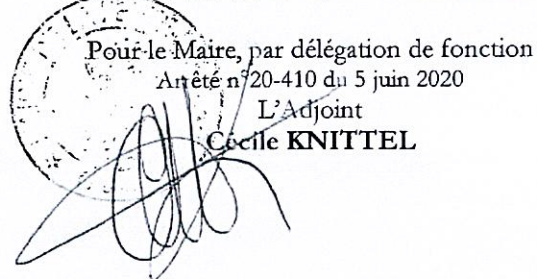 Pour le Maire, par délégation de fonction
Arrêté n°20-410 du 5 juin 2020
L'Adjoint
Cécile KNITTEL